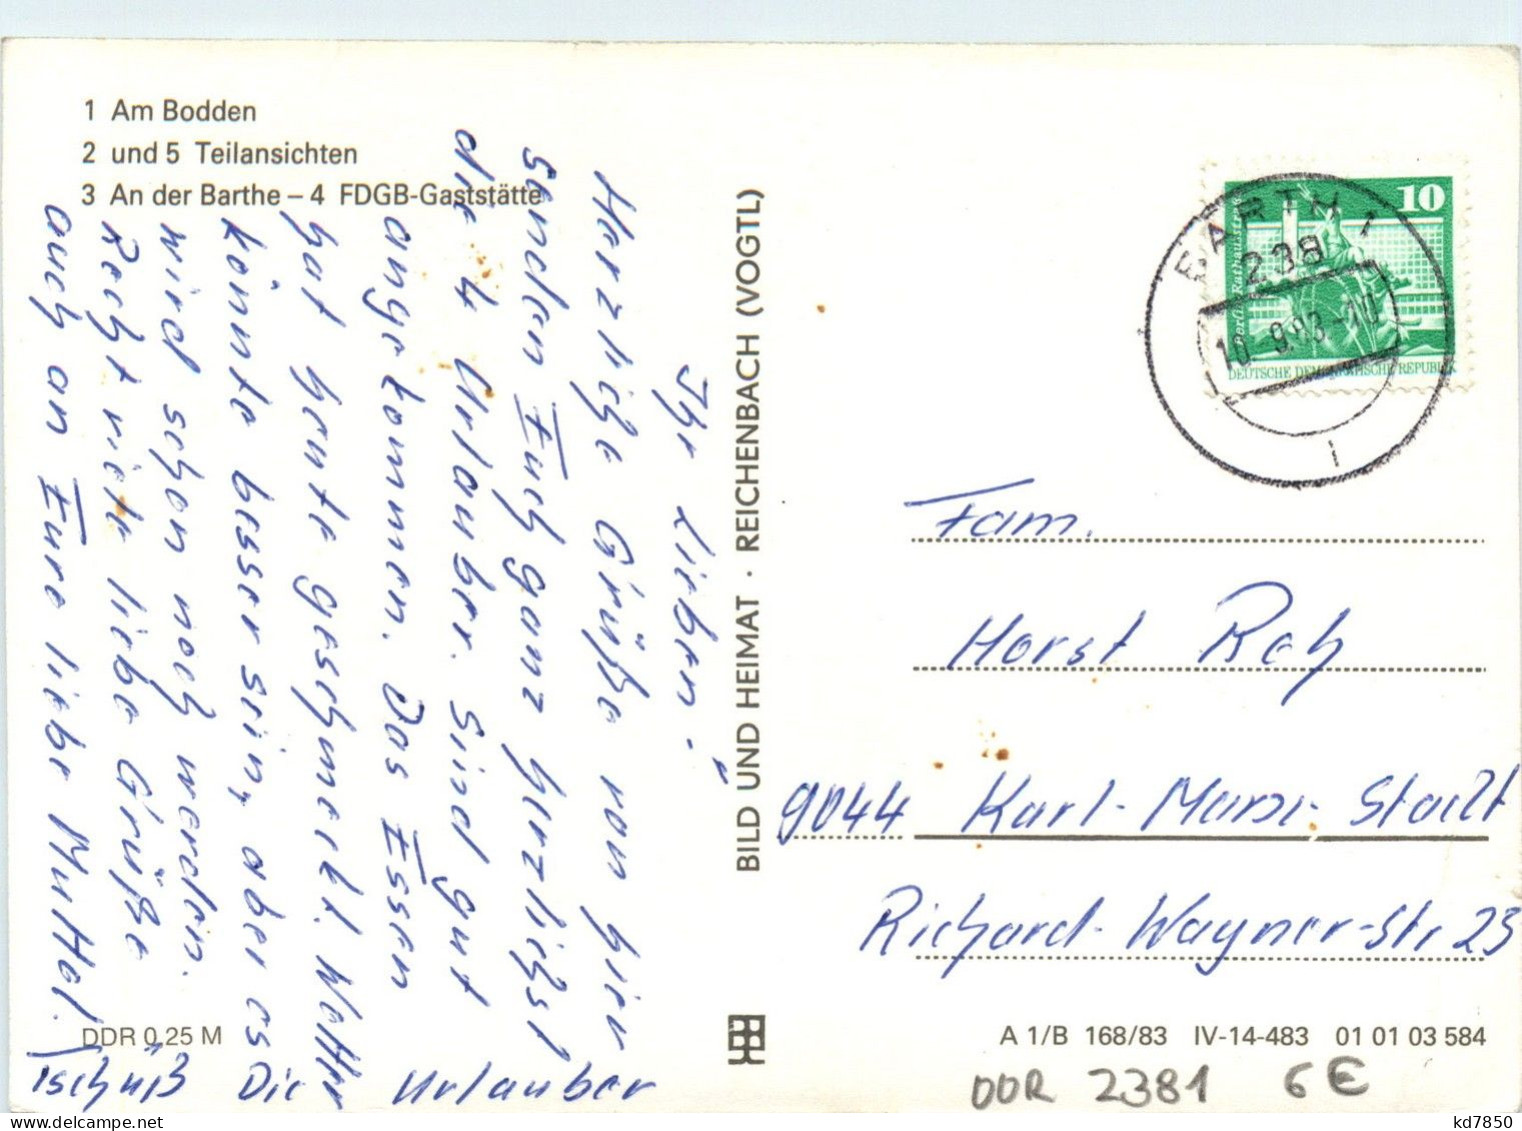 1 Am Bodden
2 und 5 Teilansichten
3 An der Barthe – 4 FDGB-Gaststätte
Ihr Lieben!
Herzliche Grüße von hier
senden Euch ganz herzlichst
die 4 Urlauber. Sind gut
angekommen. Das Essen
hat heute geschmeckt. Wetter
könnte besser sein, aber es
wird schon noch werden.
Recht viele liebe Grüße
auch an Eure liebe Muttel.
Tschüß Die Urlauber
DDR 0,25 M
BILD UND HEIMAT · REICHENBACH (VOGTL)
10
Berlin, Rathausstraße
DEUTSCHE DEMOKRATISCHE REPUBLIK
BARTH 1
238
10.-9.83-10
Fam.
Horst Reh
9044 Karl-Marx-Stadt
Richard-Wagner-Str. 23
A 1/B 168/83 IV-14-483 01 01 03 584
DDR 2381 6 €
kd7850